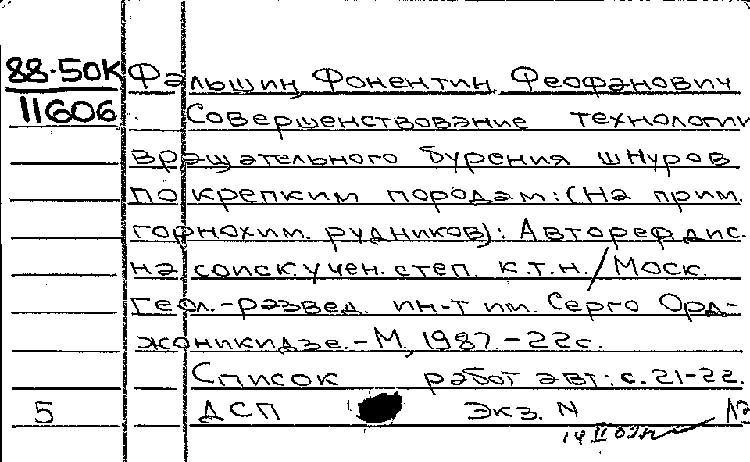 88-50К Фальшин, Фонентин Феофанович
11606 Совершенствование технологии
вращательного бурения шнуров
по крепким породам: (На прим.
горнохим. рудников): Автореф. дис.
на соиск. учен. степ. к.т.н. / Моск.
геол.-развед. ин-т им. Серго Орд-
жоникидзе. - М., 1987. - 22с.
Список работ авт: с. 21-22.
5 ДСП Экз. N
14 II